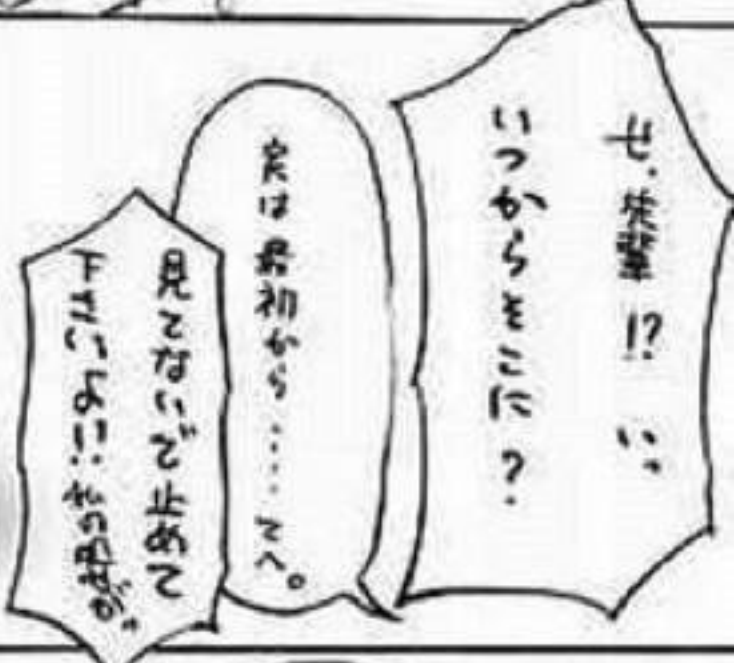 せ、先輩!? いっ
いつからそこに?
実は最初から……てへ。
見てないで止めて
下さいよ!! 私の